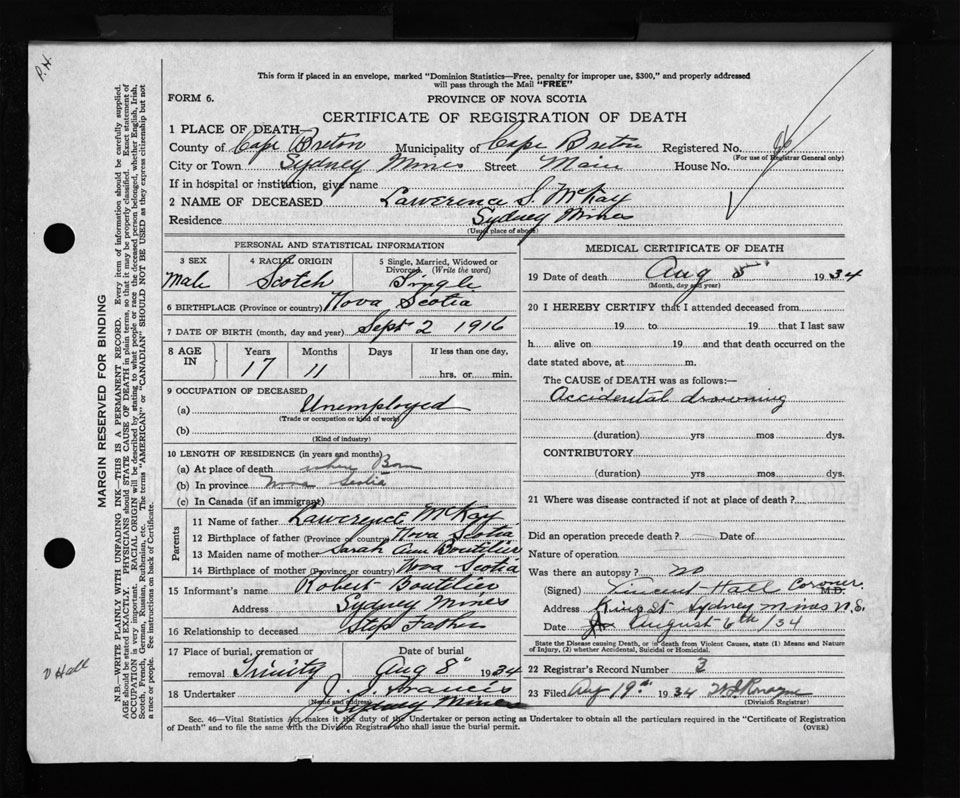 P.H.
This form if placed in an envelope, marked "Dominion Statistics—Free, penalty for improper use, $300," and properly addressed
will pass through the Mail "FREE"
FORM 6.
PROVINCE OF NOVA SCOTIA
CERTIFICATE OF REGISTRATION OF DEATH
1 PLACE OF DEATH—
County of Cape Breton Municipality of Cape Breton Registered No.
(For use of Registrar General only)
City or Town Sydney Mines Street Main House No.
If in hospital or institution, give name
2 NAME OF DECEASED Lawerence S. McKay
Residence Sydney Mines
(Usual place of abode)
PERSONAL AND STATISTICAL INFORMATION
3 SEX
Male
4 RACIAL ORIGIN
Scotch
5 Single, Married, Widowed or
Divorced. (Write the word)
Single
6 BIRTHPLACE (Province or country) Nova Scotia
7 DATE OF BIRTH (month, day and year) Sept 2 1916
8 AGE IN
Years Months Days If less than one day,
17 11 hrs. or min.
9 OCCUPATION OF DECEASED
(a) Unemployed
(Trade or occupation or kind of work)
(b)
(Kind of industry)
10 LENGTH OF RESIDENCE (in years and months)
(a) At place of death where Born
(b) In province Nova Scotia
(c) In Canada (if an immigrant)
Parents
11 Name of father Lawerence McKay
12 Birthplace of father (Province or country) Nova Scotia
13 Maiden name of mother Sarah Ann Boutilier
14 Birthplace of mother (Province or country) Nova Scotia
15 Informant's name Robert Boutilier
Address Sydney Mines
16 Relationship to deceased Step Father
17 Place of burial, cremation or
removal Trinity
Date of burial
Aug 8th 1934
18 Undertaker J. S. Francis
(Name and address) Sydney Mines
MEDICAL CERTIFICATE OF DEATH
19 Date of death Aug 5th 1934
(Month, day and year)
20 I HEREBY CERTIFY that I attended deceased from
19 to 19 that I last saw
h alive on 19 and that death occurred on the
date stated above, at m.
The CAUSE of DEATH was as follows:—
Accidental drowning
(duration) yrs mos dys.
CONTRIBUTORY
(duration) yrs mos dys.
21 Where was disease contracted if not at place of death?
Did an operation precede death? — Date of
Nature of operation
Was there an autopsy? no
(Signed) Vincent Hall Coroner. M.D.
Address King St Sydney Mines N.S.
Date August 6th /34
State the Disease causing Death, or in death from Violent Causes, state (1) Means and Nature
of Injury, (2) whether Accidental, Suicidal or Homicidal.
22 Registrar's Record Number 3
23 Filed Aug 19th 1934
(Division Registrar)
Sec. 46—Vital Statistics Act makes it the duty of the Undertaker or person acting as Undertaker to obtain all the particulars required in the "Certificate of Registration
of Death" and to file the same with the Division Registrar who shall issue the burial permit.
(OVER)
MARGIN RESERVED FOR BINDING
N.B.—WRITE PLAINLY WITH UNFADING INK—THIS IS A PERMANENT RECORD. Every item of information should be carefully supplied.
AGE should be stated EXACTLY. PHYSICIANS should STATE CAUSE OF DEATH in plain terms, so that it may be properly classified. Exact statement of
OCCUPATION is very important. RACIAL ORIGIN will be described by stating to what people or race the deceased person belonged, whether English, Irish,
Scotch, French, German, Russian, Ruthenian, etc. The terms "AMERICAN" or "CANADIAN" SHOULD NOT BE USED as they express citizenship but not
a race or people. See instructions on back of Certificate.
V Hall